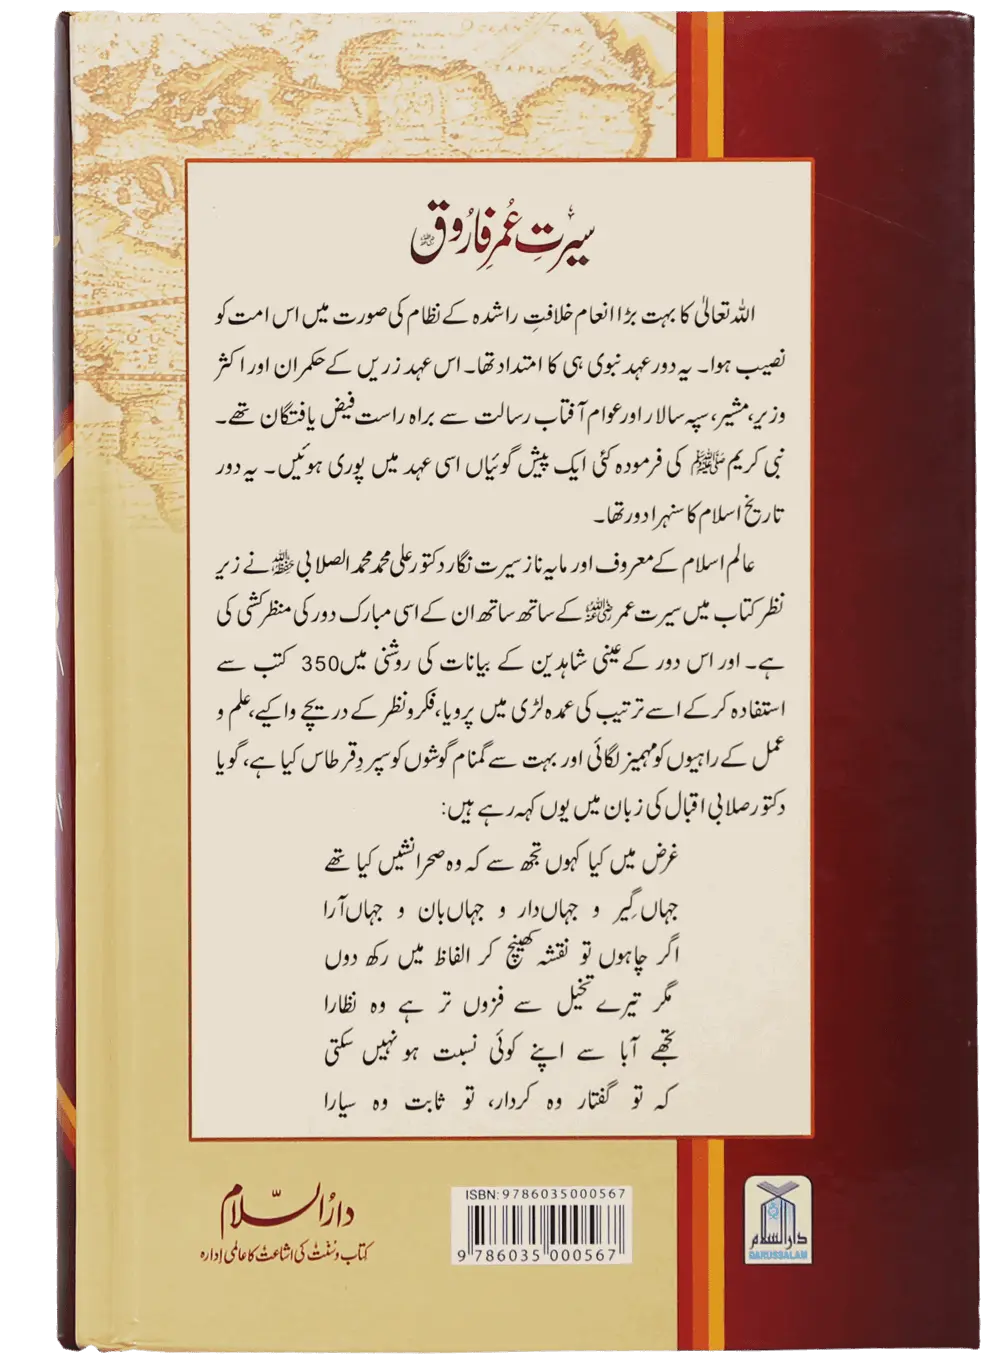 سیرتِ عُمرِ فاروق رضی اللہ عنہ
اللہ تعالیٰ کا بہت بڑا انعام خلافتِ راشدہ کے نظام کی صورت میں اس امت کو
نصیب ہوا۔ یہ دور عہد نبوی ہی کا امتداد تھا۔ اس عہد زریں کے حکمران اور اکثر
وزیر، مشیر، سپہ سالار اور عوام آفتاب رسالت سے براہ راست فیض یافتگان تھے۔
نبی کریم ﷺ کی فرمودہ کئی ایک پیش گوئیاں اسی عہد میں پوری ہوئیں۔ یہ دور
تاریخ اسلام کا سنہرا دور تھا۔
عالم اسلام کے معروف اور مایہ ناز سیرت نگار دکتور علی محمد محمد الصلابی حفظہ اللہ نے زیر
نظر کتاب میں سیرت عمر رضی اللہ عنہ کے ساتھ ساتھ ان کے اسی مبارک دور کی منظر کشی کی
ہے۔ اور اس دور کے عینی شاہدین کے بیانات کی روشنی میں 350 کتب سے
استفادہ کر کے اسے ترتیب کی عمدہ لڑی میں پرویا، فکر و نظر کے دریچے وا کیے، علم و
عمل کے راہیوں کو مہمیز لگائی اور بہت سے گمنام گوشوں کو سپردِ قرطاس کیا ہے، گویا
دکتور صلابی اقبال کی زبان میں یوں کہہ رہے ہیں:
غرض میں کیا کہوں تجھ سے کہ وہ صحرا نشیں کیا تھے
جہاں گِیر و جہاں دار و جہاں بان و جہاں آرا
اگر چاہوں تو نقشہ کھینچ کر الفاظ میں رکھ دوں
مگر تیرے تخیل سے فزوں تر ہے وہ نظارا
تجھے آبا سے اپنے کوئی نسبت ہو نہیں سکتی
کہ تو گفتار وہ کردار، تو ثابت وہ سیارا
دارُ السلام
کتاب و سُنّت کی اشاعت کا عالمی اِدارہ
ISBN: 9786035000567
9 786035 000567
دارالسلام
DARUSSALAM